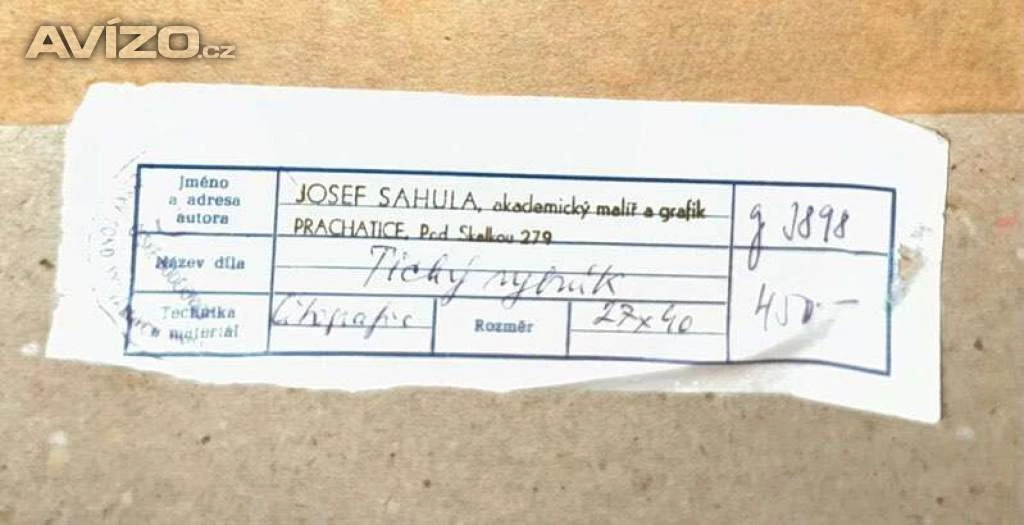 AVÍZO.cz
Jméno
a adresa
autora
JOSEF SAHULA, akademický malíř a grafik
PRACHATICE, Pod Skalkou 279
g 3898
Název díla
Tichý rybník
450.-
Technika
materiál
Litografie
Rozměr
27x40